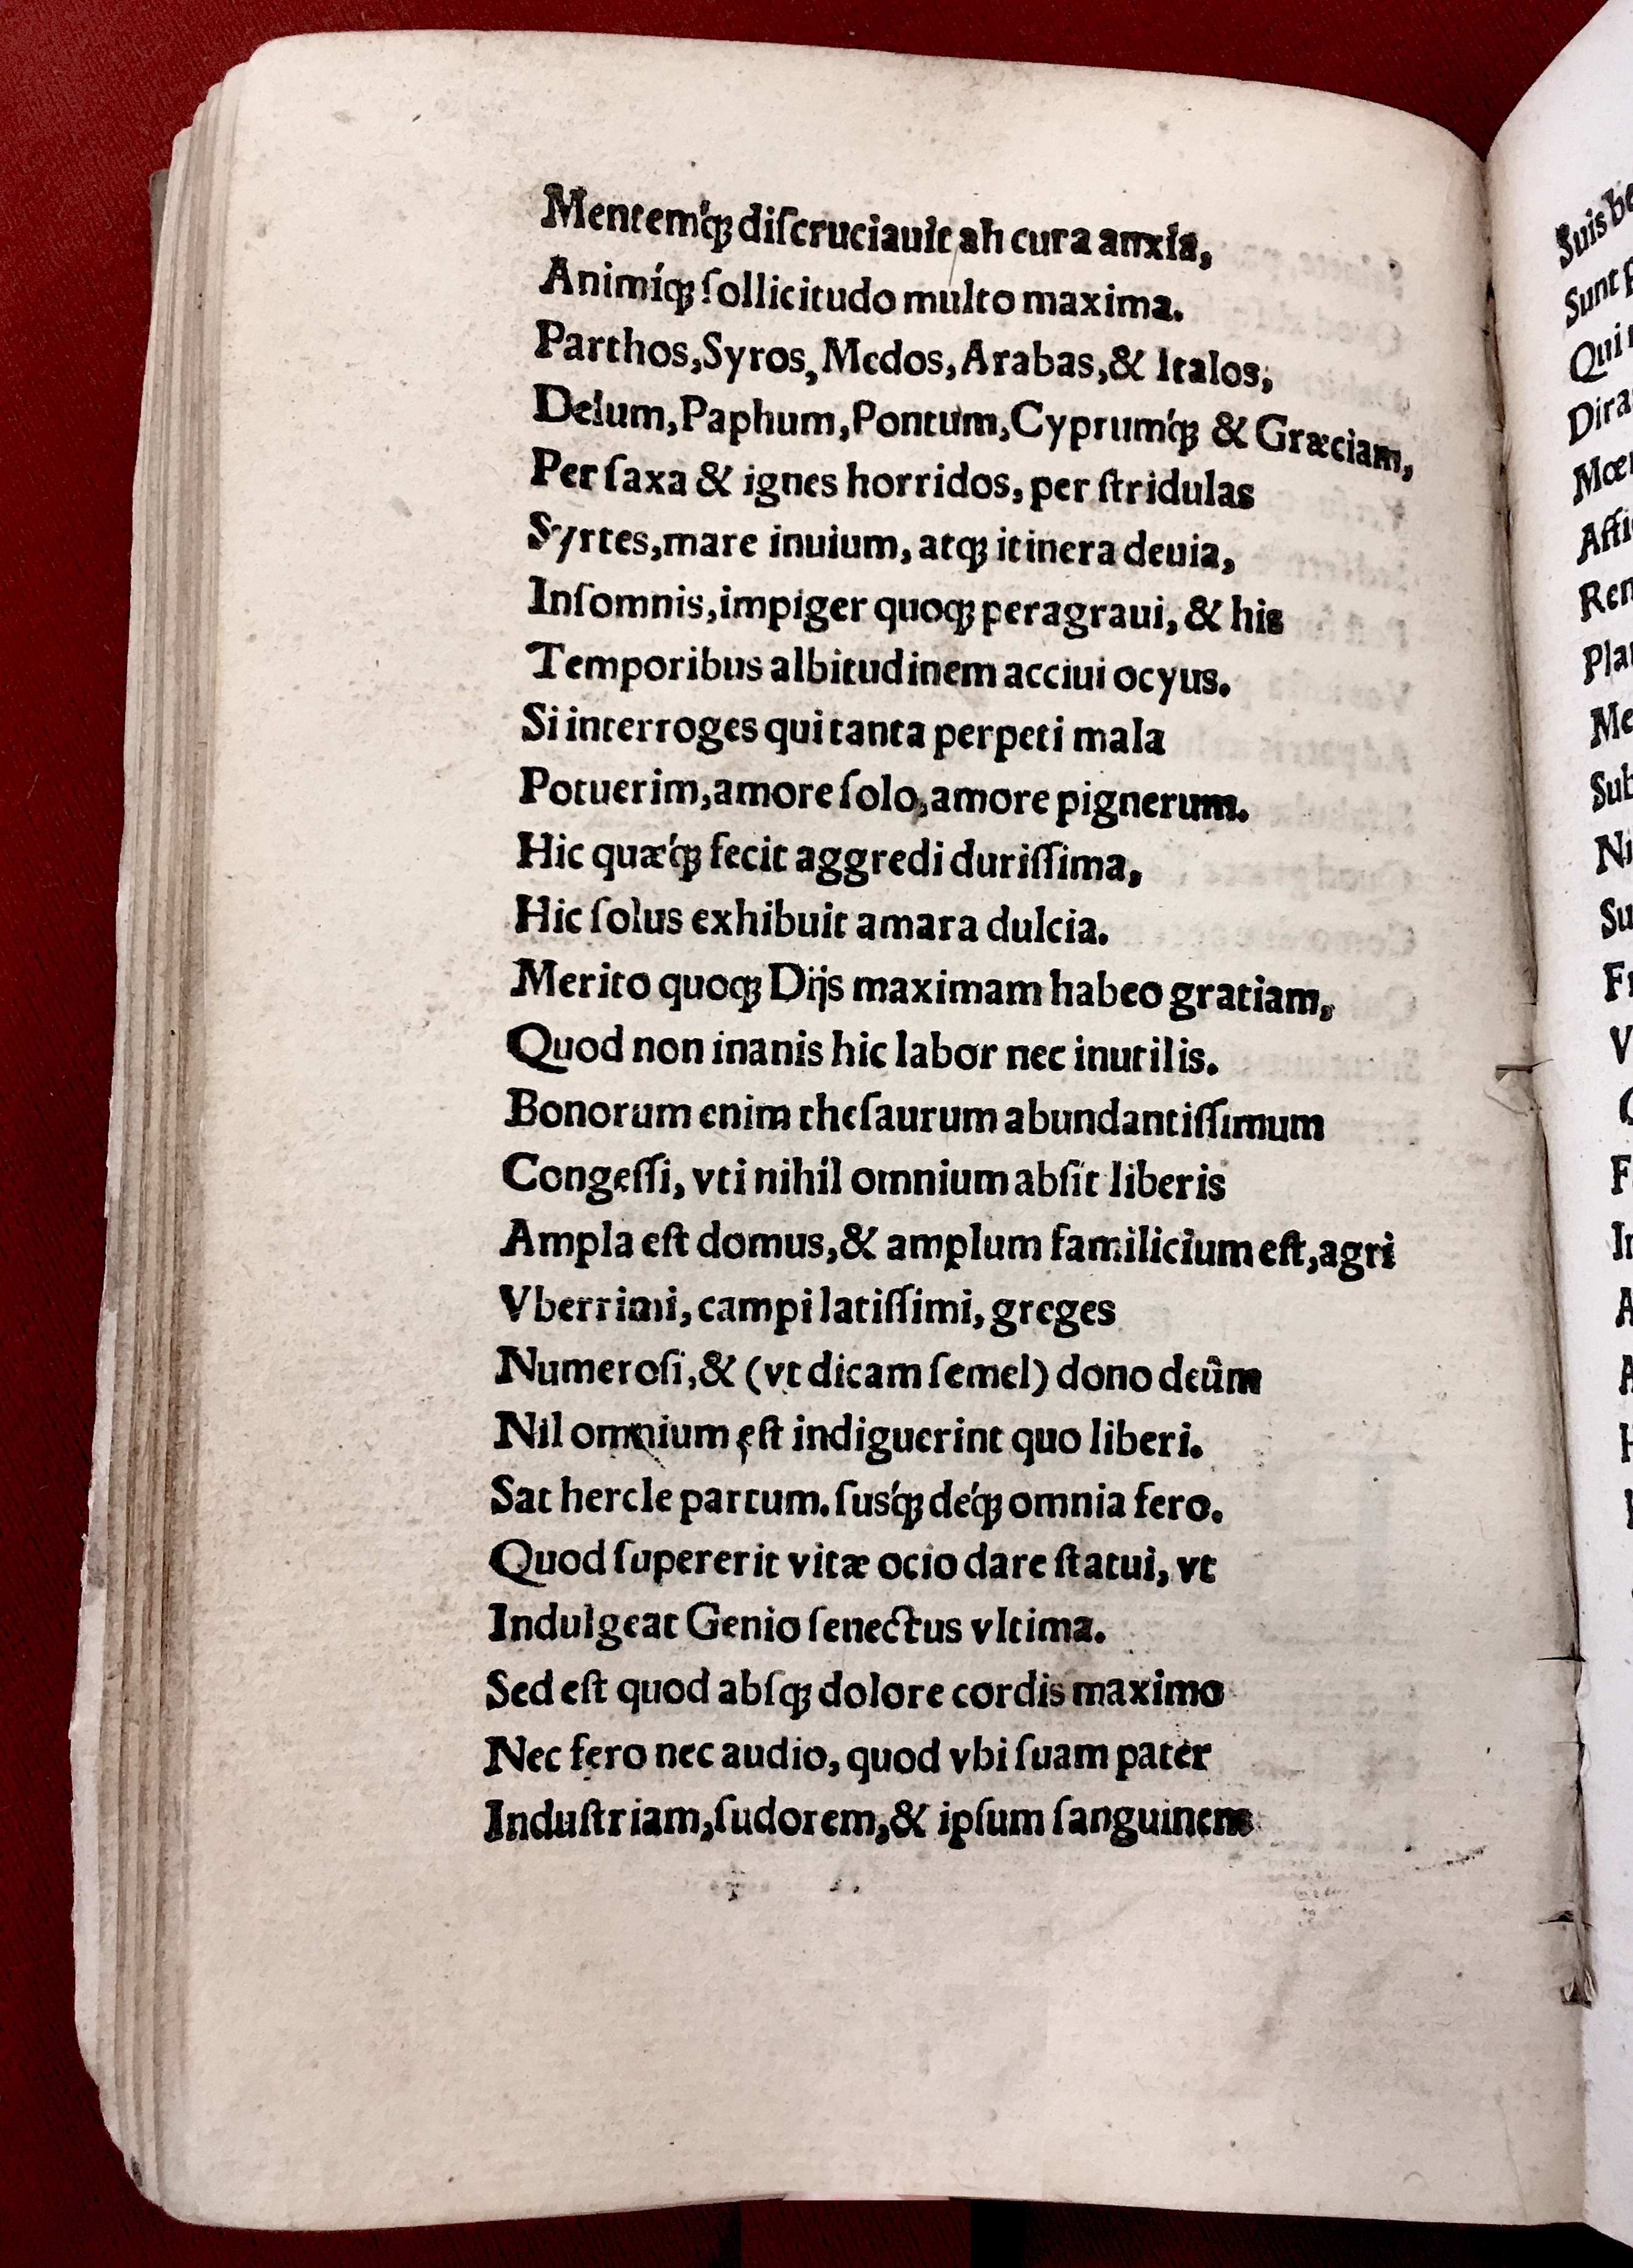 Mentemq́ꝫ diſcruciauit ah cura anxia,
Animíqꝫ ſollicitudo multo maxima.
Parthos, Syros, Medos, Arabas, & Italos,
Delum, Paphum, Pontum, Cyprumq́ꝫ & Græciam,
Per ſaxa & ignes horridos, per ſtridulas
Syrtes, mare inuium, atqꝫ itinera deuia,
Inſomnis, impiger quoqꝫ peragraui, & his
Temporibus albitudinem acciui ocyus.
Si interroges qui tanta perpeti mala
Potuerim, amore ſolo, amore pignerum.
Hic quæq́ꝫ fecit aggredi duriſſima,
Hic ſolus exhibuit amara dulcia.
Merito quoqꝫ Dijs maximam habeo gratiam,
Quod non inanis hic labor nec inutilis.
Bonorum enim theſaurum abundantiſſimum
Congeſſi, vti nihil omnium abſit liberis
Ampla eſt domus, & amplum familicium eſt, agri
Vberrimi, campi latiſſimi, greges
Numeroſi, & (vt dicam ſemel) dono deûm
Nil omnium eſt indiguerint quo liberi.
Sat hercle partum. ſusq́ꝫ deq́ꝫ omnia fero.
Quod ſupererit vitæ ocio dare ſtatui, vt
Indulgeat Genio ſenectus vltima.
Sed eſt quod abſqꝫ dolore cordis maximo
Nec fero nec audio, quod vbi ſuam pater
Induſtriam, ſudorem, & ipſum ſanguinem
Sunt
Qui